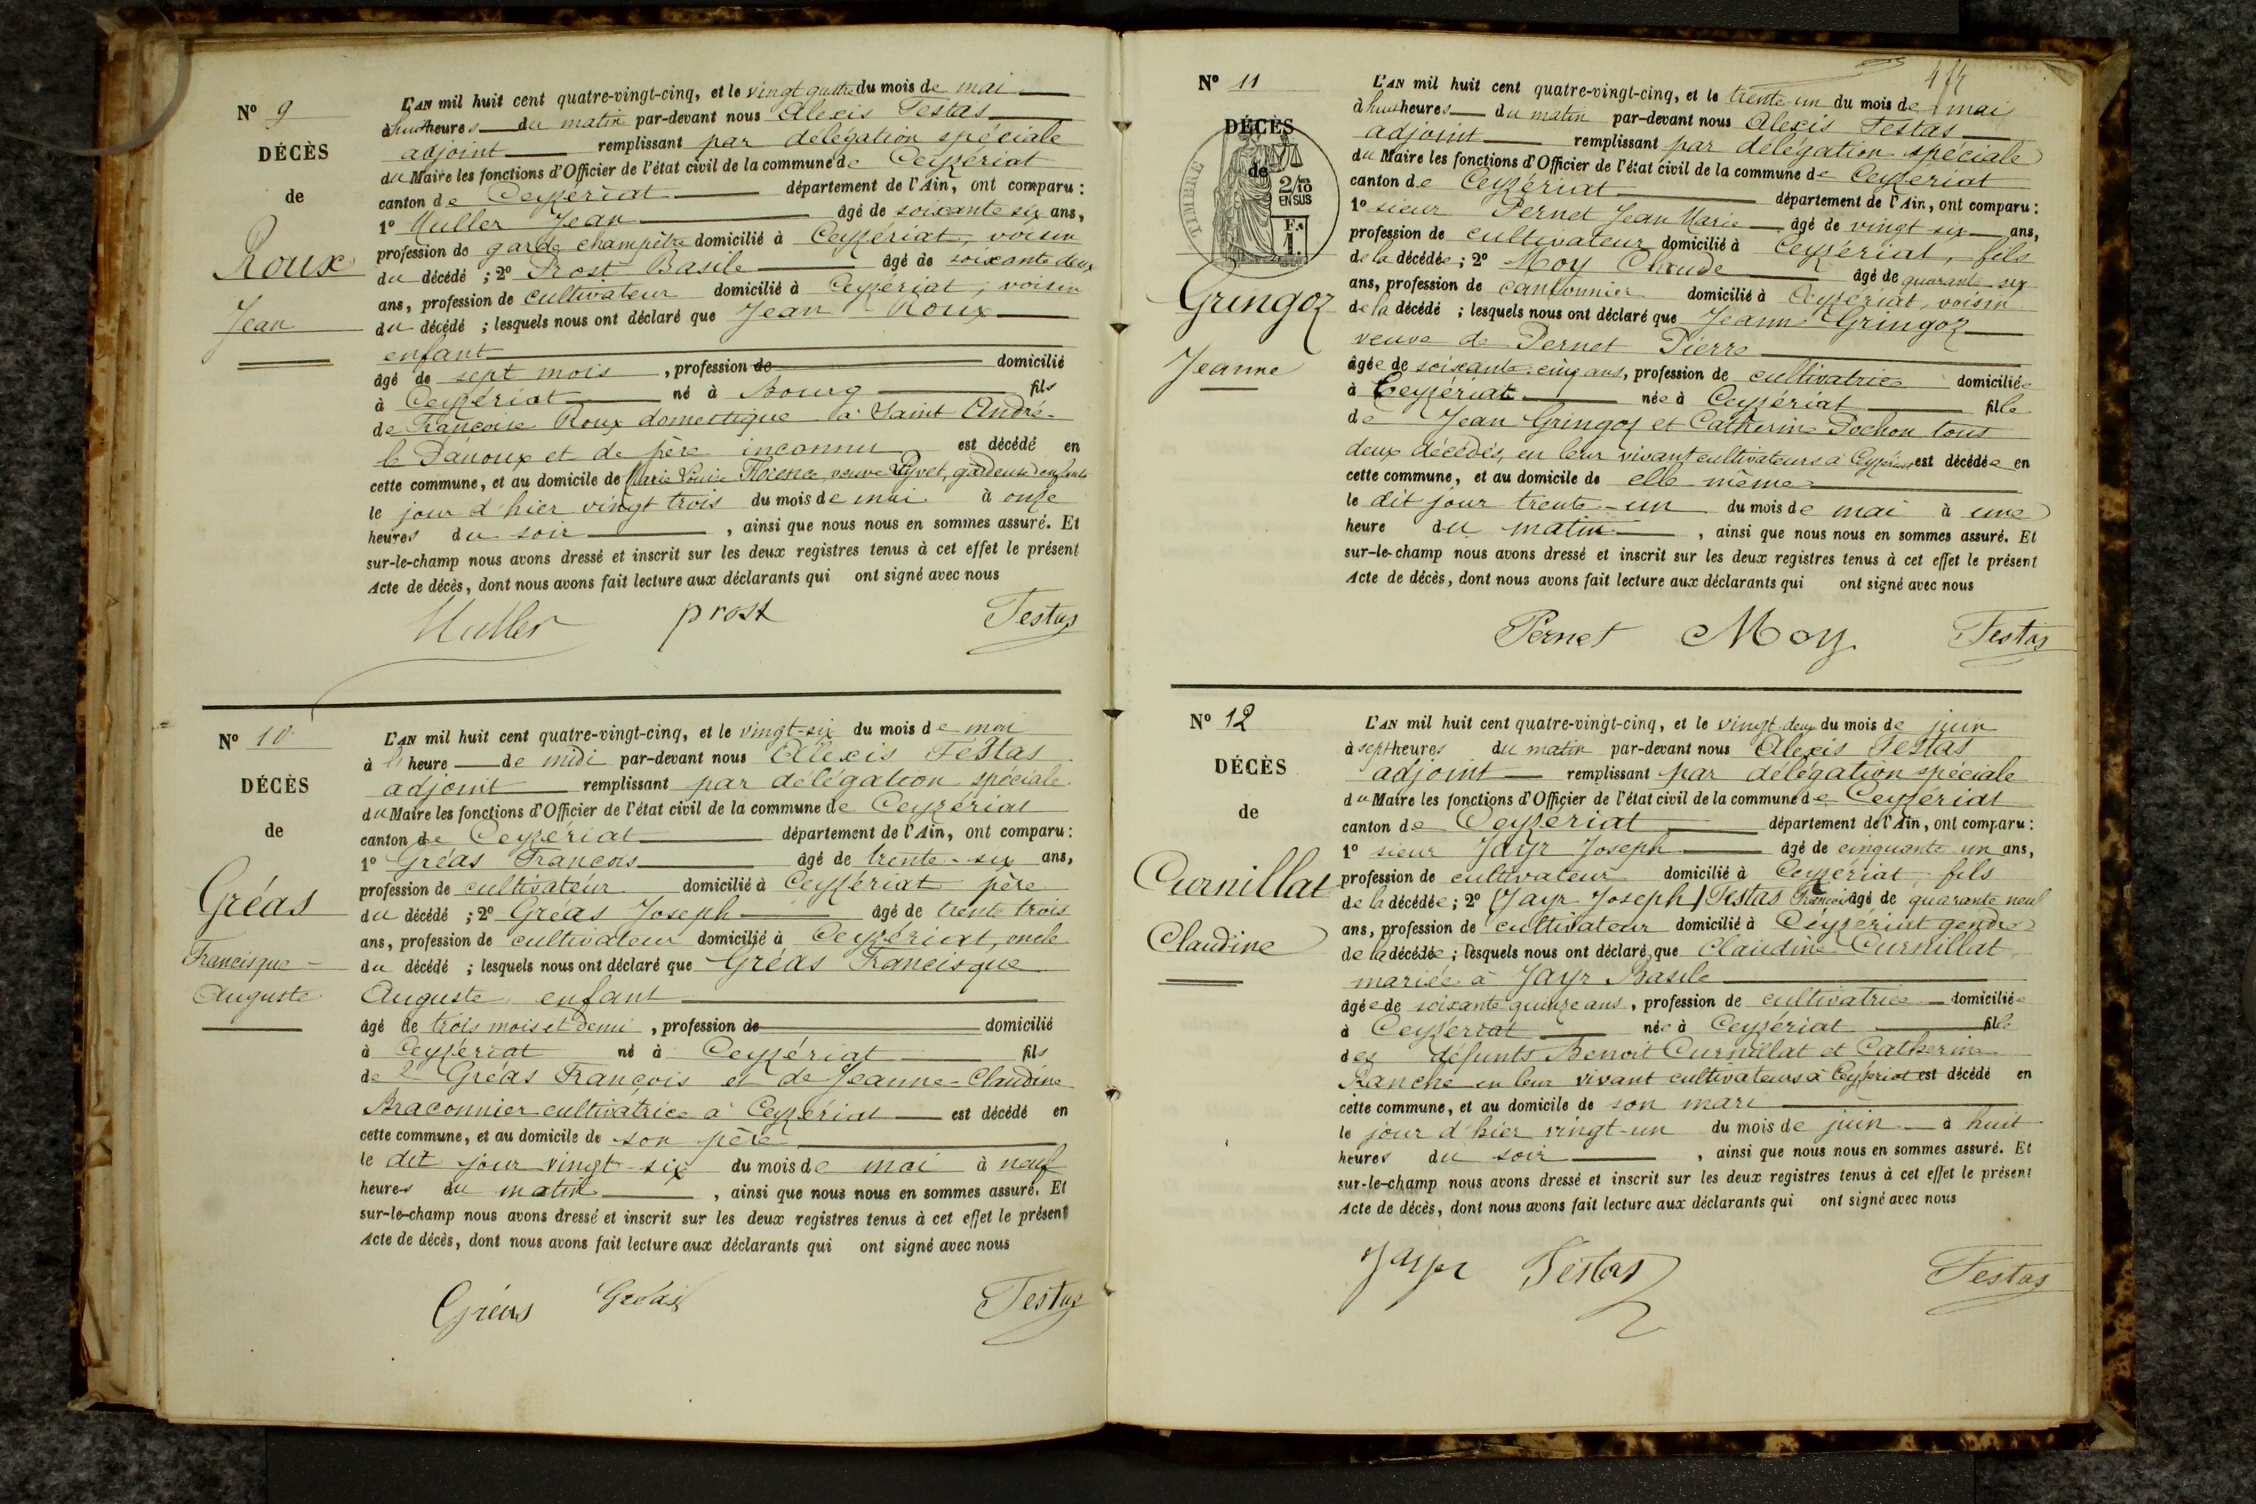 N° 9
DÉCÈS
de
Roux
Jean
L'AN mil huit cent quatre-vingt-cinq, et le vingt quatre du mois de mai
à huit heures du matin par-devant nous Alexis Festas
adjoint remplissant par délégation spéciale
du Maire les fonctions d'Officier de l'état civil de la commune de Ceyzériat
canton de Ceyzériat département de l'Ain, ont comparu :
1° Muller Jean âgé de soixante six ans,
profession de garde champêtre domicilié à Ceyzériat, voisin
du décédé ; 2° Prost Basile âgé de soixante deux
ans, profession de cultivateur domicilié à Ceyzériat, voisin
du décédé ; lesquels nous ont déclaré que Jean Roux
enfant
âgé de sept mois , profession de domicilié
à Ceyzériat né à Bourg fils
de Françoise Roux domestique à Saint André-
le Panoux et de père inconnu est décédé en
cette commune, et au domicile de Marie Louise Florence, veuve gardeuse d'enfants
le jour d'hier vingt trois du mois de mai à onze
heures du soir , ainsi que nous nous en sommes assuré. Et
sur-le-champ nous avons dressé et inscrit sur les deux registres tenus à cet effet le présent
Acte de décès, dont nous avons fait lecture aux déclarants qui ont signé avec nous
Muller prost Festas
N° 10
DÉCÈS
de
Gréas
Francisque
Auguste
L'AN mil huit cent quatre-vingt-cinq, et le vingt-six du mois de mai
à heure de midi par-devant nous Alexis Festas
adjoint remplissant par délégation spéciale
du Maire les fonctions d'Officier de l'état civil de la commune de Ceyzériat
canton de Ceyzériat département de l'Ain, ont comparu :
1° Gréas François âgé de trente-six ans,
profession de cultivateur domicilié à Ceyzériat père
du décédé ; 2° Gréas Joseph âgé de trente trois
ans, profession de cultivateur domicilié à Ceyzériat, oncle
du décédé ; lesquels nous ont déclaré que Gréas Francisque
Auguste enfant
âgé de trois mois et demi , profession de domicilié
à Ceyzériat né à Ceyzériat fils
de Gréas François et de Jeanne-Claudine
Braconnier cultivatrice à Ceyzériat est décédé en
cette commune, et au domicile de son père
le dit jour vingt-six du mois de mai à neuf
heures du matin , ainsi que nous nous en sommes assuré. Et
sur-le-champ nous avons dressé et inscrit sur les deux registres tenus à cet effet le présent
Acte de décès, dont nous avons fait lecture aux déclarants qui ont signé avec nous
Gréas Gréas Festas
N° 11
DÉCÈS
de
TIMBRE
2/10
EN SUS
F.
1.
Gringoz
Jeanne
L'AN mil huit cent quatre-vingt-cinq, et le trente-un du mois de mai
à huit heures du matin par-devant nous Alexis Festas
adjoint remplissant par délégation spéciale
du Maire les fonctions d'Officier de l'état civil de la commune de Ceyzériat
canton de Ceyzériat département de l'Ain, ont comparu :
1° sieur Pernet Jean Marie âgé de vingt six ans,
profession de cultivateur domicilié à Ceyzériat, fils
de la décédée ; 2° Moy Claude âgé de quarante six
ans, profession de cantonnier domicilié à Ceyzériat, voisin
de la décédé ; lesquels nous ont déclaré que Jeanne Gringoz
veuve de Pernet Pierre
âgée de soixante-cinq ans, profession de cultivatrice domiciliée
à Ceyzériat née à Ceyzériat fille
de Jean Gringoz et Catherine Pochon tous
deux décédés, en leur vivant cultivateurs à Ceyzériat est décédée en
cette commune, et au domicile de elle même
le dit jour trente-un du mois de mai à une
heure du matin , ainsi que nous nous en sommes assuré. Et
sur-le-champ nous avons dressé et inscrit sur les deux registres tenus à cet effet le présent
Acte de décès, dont nous avons fait lecture aux déclarants qui ont signé avec nous
Pernet Moy Festas
N° 12
DÉCÈS
de
Curnillat
Claudine
L'AN mil huit cent quatre-vingt-cinq, et le vingt-deux du mois de juin
à sept heures du matin par-devant nous Alexis Festas
adjoint remplissant par délégation spéciale
du Maire les fonctions d'Officier de l'état civil de la commune de Ceyzériat
canton de Ceyzériat département de l'Ain, ont comparu :
1° sieur Jayr Joseph âgé de cinquante un ans,
profession de cultivateur domicilié à Ceyzériat, fils
de la décédée ; 2° (Jayr Joseph) Festas François âgé de quarante neuf
ans, profession de cultivateur domicilié à Céyzériat gendre
de la décédée ; lesquels nous ont déclaré que Claudine Curnillat
mariée à Jayr Basile
âgée de soixante quinze ans , profession de cultivatrice domiciliée
à Ceyzériat née à Ceyzériat fille
des défunts Benoit Curnillat et Catherine
Ranche en leur vivant cultivateurs à Ceyzériat est décédé en
cette commune, et au domicile de son mari
le jour d'hier vingt-un du mois de juin à huit
heures du soir , ainsi que nous nous en sommes assuré. Et
sur-le-champ nous avons dressé et inscrit sur les deux registres tenus à cet effet le présent
Acte de décès, dont nous avons fait lecture aux déclarants qui ont signé avec nous
Jayr Festas Festas